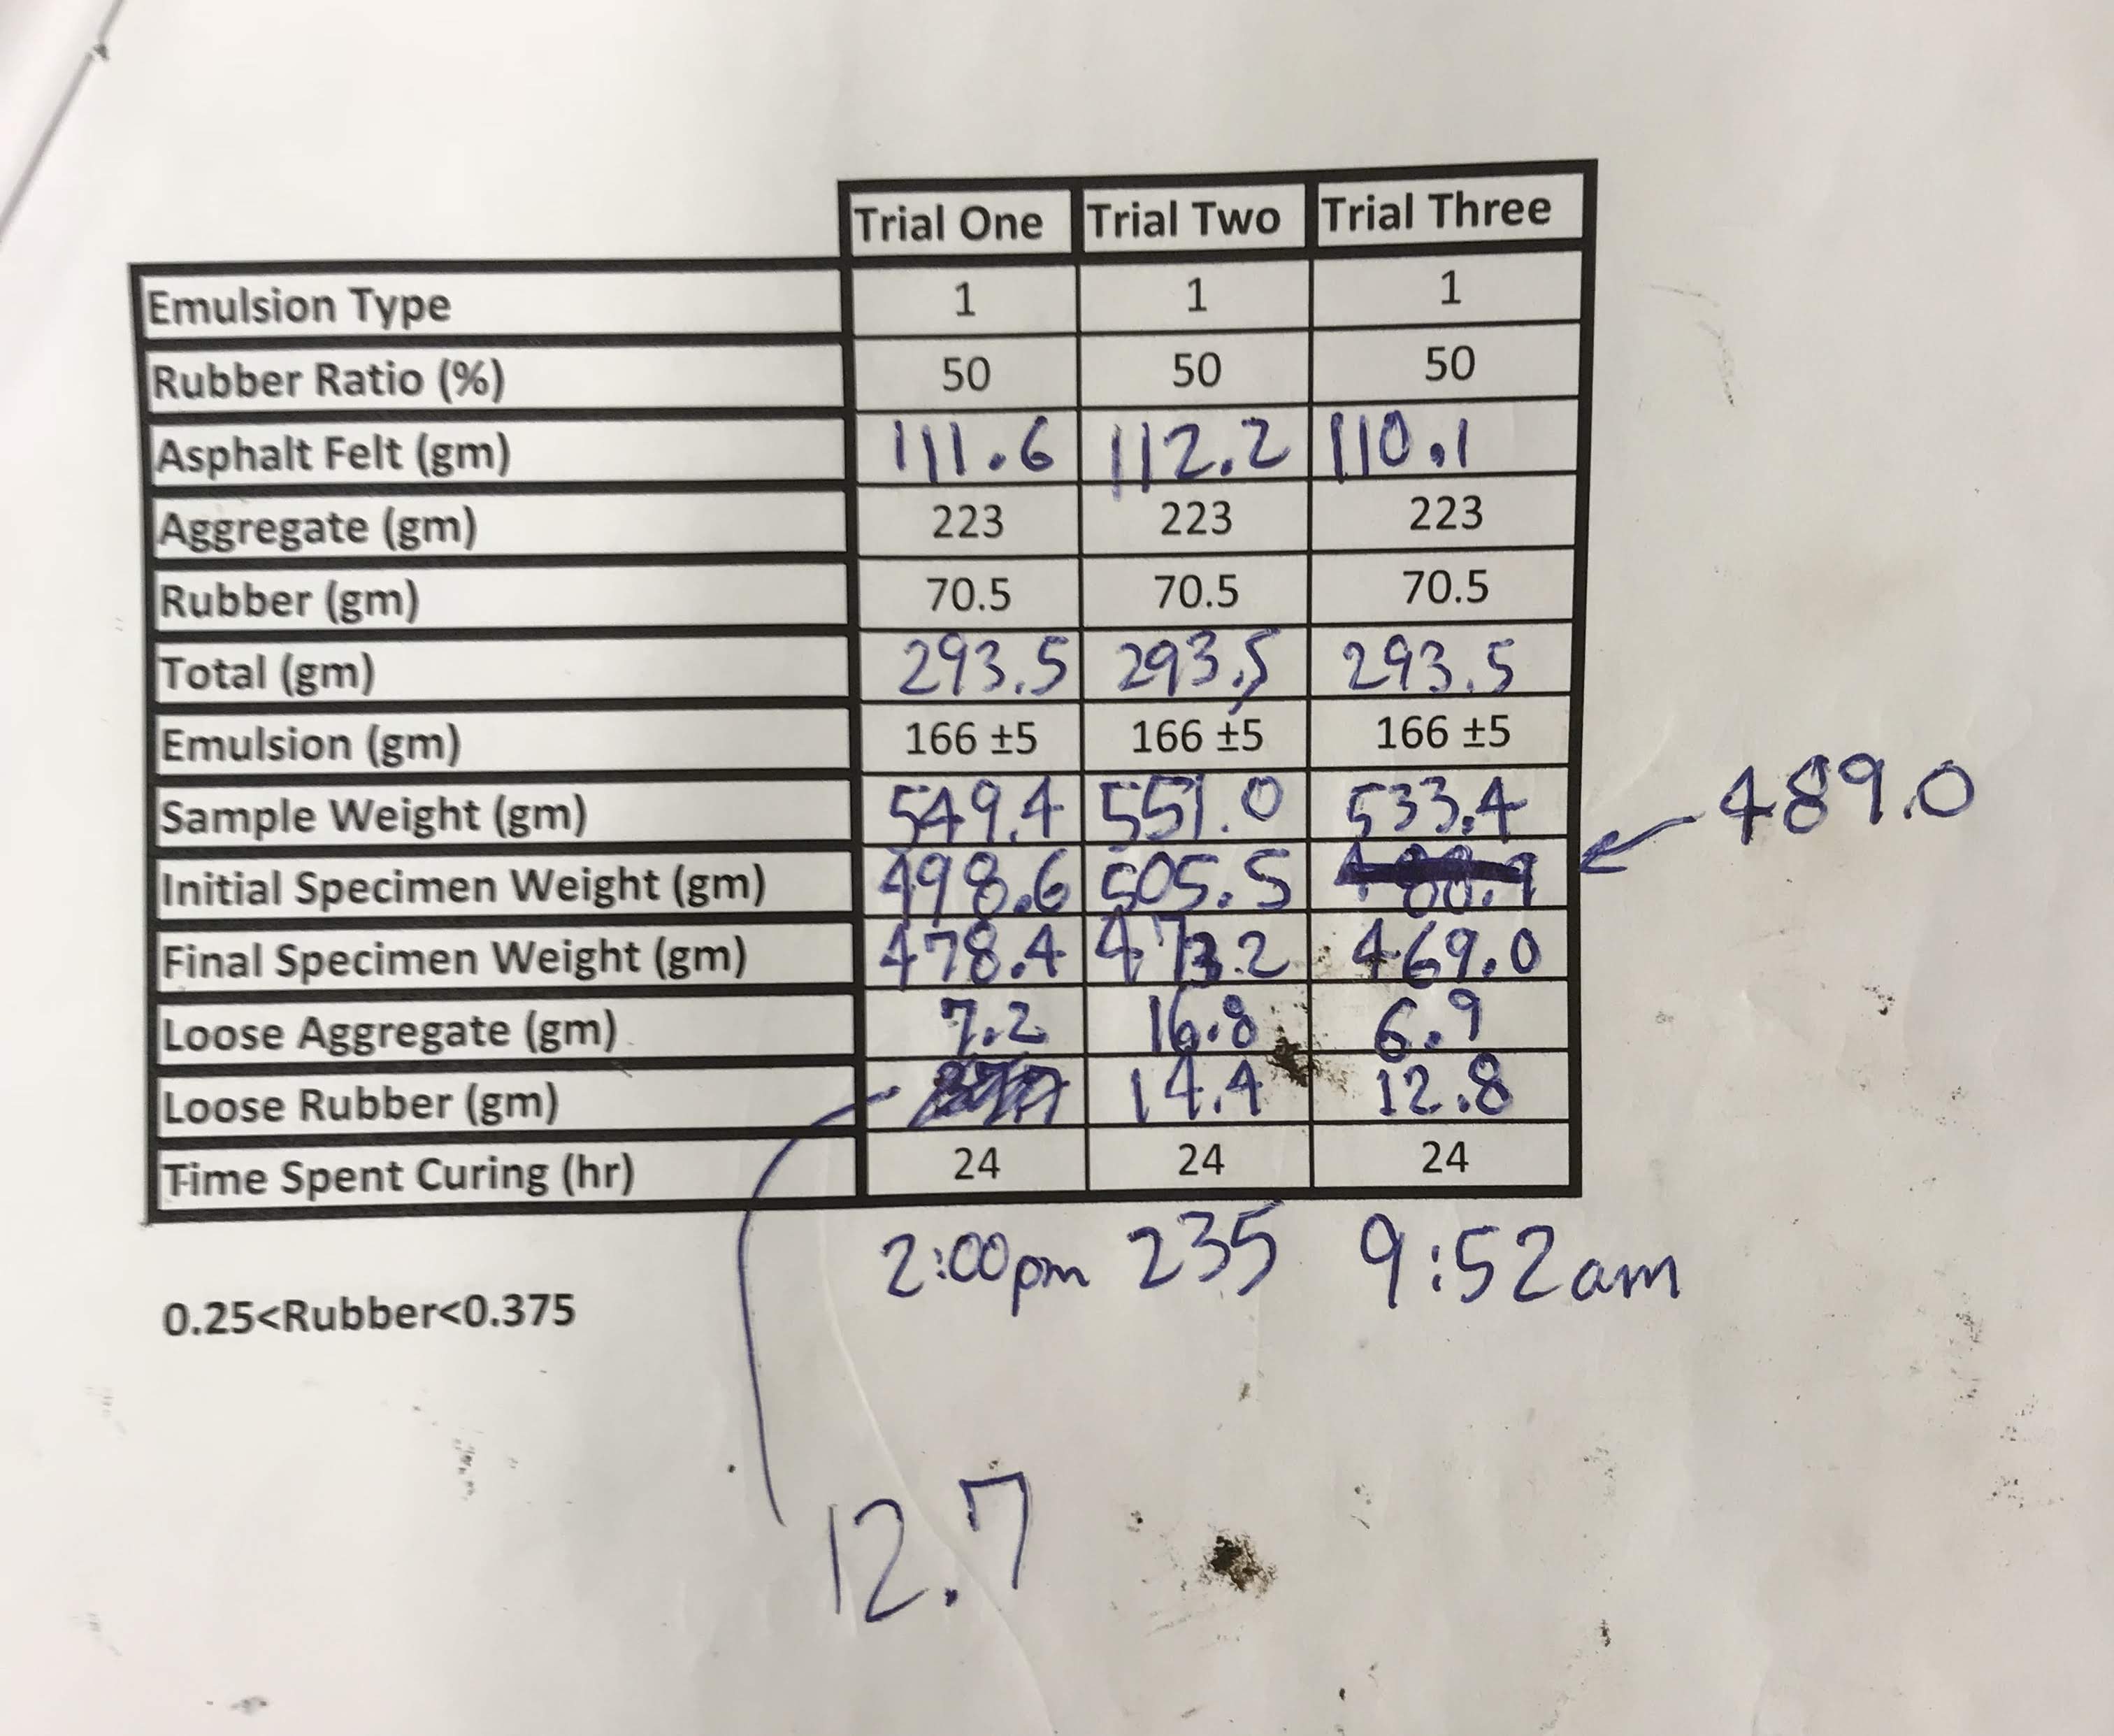 Trial One Trial Two Trial Three
Emulsion Type 1 1 1
Rubber Ratio (%) 50 50 50
Asphalt Felt (gm) 111.6 112.2 110.1
Aggregate (gm) 223 223 223
Rubber (gm) 70.5 70.5 70.5
Total (gm) 293.5 293.5 293.5
Emulsion (gm) 166 ±5 166 ±5 166 ±5
Sample Weight (gm) 549.4 551.0 533.4
Initial Specimen Weight (gm) 498.6 505.5 489.0
Final Specimen Weight (gm) 478.4 473.2 469.0
Loose Aggregate (gm) 7.2 16.8 6.9
Loose Rubber (gm) 14.4 12.8
Time Spent Curing (hr) 24 24 24
2:00pm 235 9:52am
0.25<Rubber<0.375
12.7